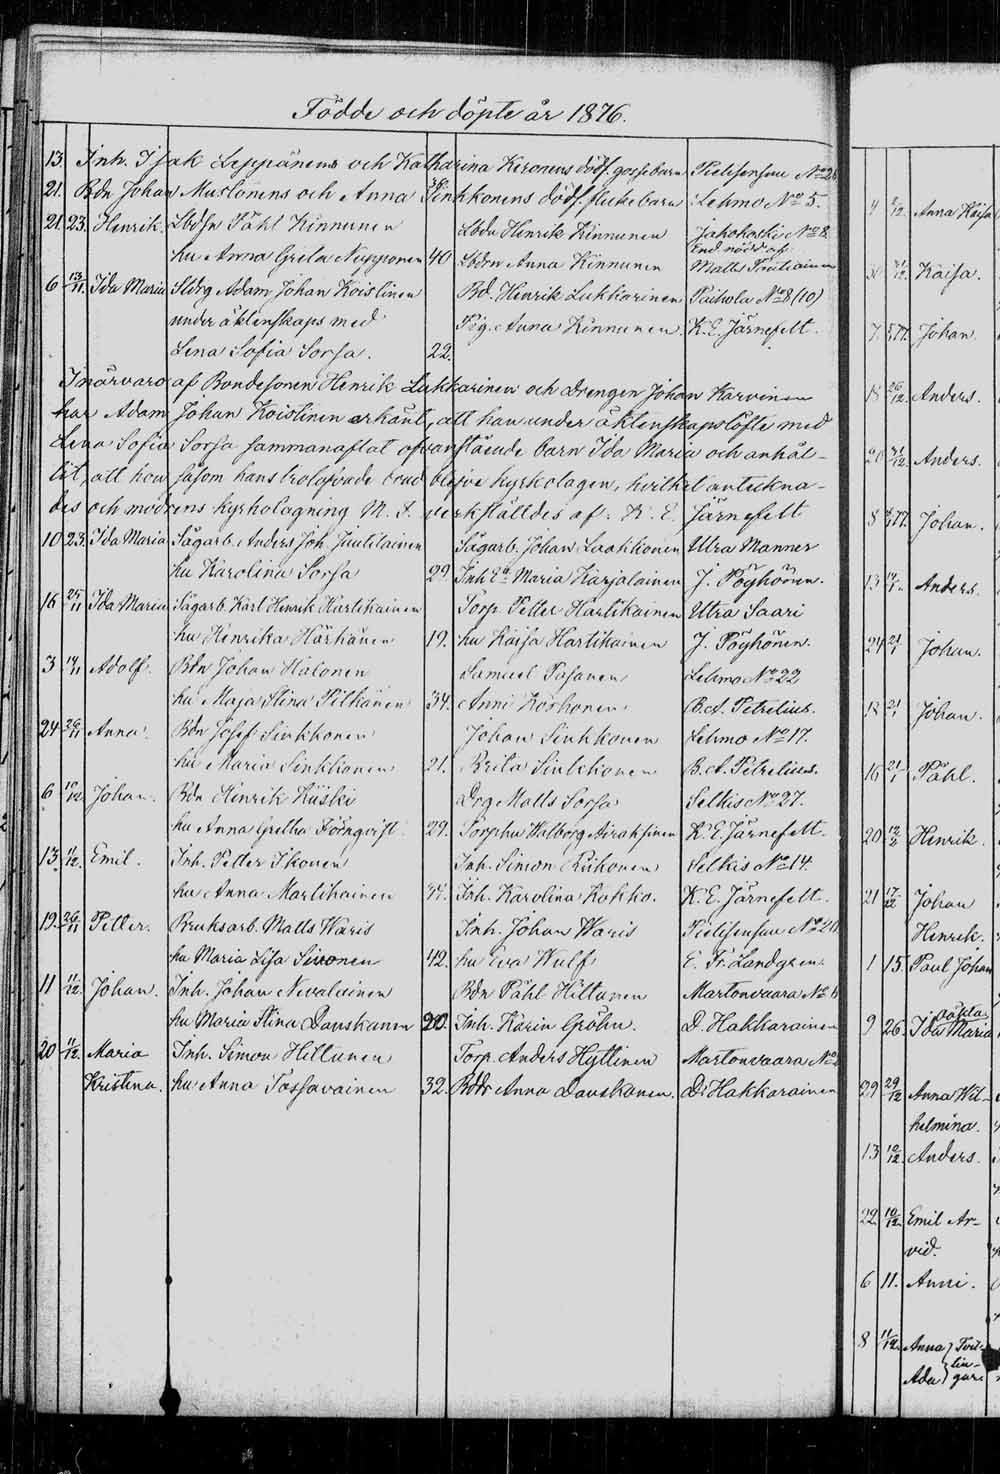 Födde och döpte år 1876.
13. Inh. Isak Leppänens och Katharina Keronens dödf. gossebarn Pielisensuu No 28
21. Bdn Johan Mustonens och Anna Sinkkonens dödf. flickebarn 36 Lehmo No 5.
21. 23. Henrik. Lbdsn Påhl Kinnunen Lbdn Henrik Kinnunen Jakokoski No 8
Endnödd. af
hu Anna Greta Nupponen 40 Lbdrn Anna Kinnunen Matts Tratiainen
6 13/11. Ida Maria Sldrg Adam Johan Koistinen Bd. Henrik Lukkarinen Paihola No 8 (10)
under äktenskaps med Pig. Anna Kinnunen. K. E. Järnefelt.
Lena Sofia Sorsa. 22.
I närvaro af Bondesonen Henrik Lukkarinen och Drengen Johan Karvinen
har Adam Johan Koistinen erkänt, att han under äktenskapslöfte med
Lena Sofia Sorsa sammanaflat ofvanstående barn Ida Maria och anhål-
lit, att hon såsom hans trolofvade brud blefve kyrkotagen, hvilket anteckna-
des och modrens kyrkotagning verkställdes af: K. E. Järnefelt
10 23. Ida Maria Sågarb. Anders Joh. Juutilainen Sågarb. Johan Laakkonen Utra Manner
hu Karolina Sorsa 29. Inh Ea Maria Karjalainen J. Pöyhönen.
16 25/11 Ida Maria Sågarb. Karl Henrik Hartikainen Torp. Petter Hartikainen Utra Saari
hu Henrika Härkänen 19. hu Kaisa Hartikainen J. Pöyhönen.
3 19/11 Adolf. Bdn Johan Halonen Samuel Pasanen Lehmo No 22
hu Maja Stina Pitkänen 34. Anni Korhonen B. A. Petrelius.
24 26/11 Anna. Bdn Josef Sinkkonen Johan Sinkkonen Lehmo No 17.
hu Maria Sinkkonen 21. Brita Sinkkonen B. A. Petrelius.
6 10/12 Johan. Bdn Henrik Kiiski Drg Matts Sorsa Selkis No 27.
hu Anna Gretha Törnqvist 29. Torphu Walborg Airaksinen K. E. Järnefelt.
13 11/12. Emil. Inh. Petter Ikonen Inh. Simon Riikonen Selkis No 14.
hu Anna Martikainen 34. Inh. Karolina Kokko. K. E. Järnefelt.
19. 26/11 Petter. Bruksarb. Matts Waris Inh. Johan Waris Pielisensuu No 20
hu Maria Lisa Sivonen 42. hu Eva Wulf E. Fr. Landgren
11 11/12. Johan. Inh. Johan Nevalainen Bdn Påhl Hiltunen Martonvaara No 4
hu Maria Stina Danskanen 20. Inh. Karin Gröhn. D. Hakkarainen
20 11/12. Maria Inh. Simon Hiltunen Torp. Anders Hyttinen Martonvaara No
Kristina. hu Anna Tossavainen 32. Bddr Anna Danskanen. D. Hakkarainen
4 2/12. Anna Kaisa
30 31/12. Kaisa.
7. Johan.
18 26/12. Anders.
20 31/12. Anders.
8 Johan.
13 14/1. Anders.
24 21/1 Johan.
12 21/1 Johan.
16 21/1 Påhl.
20 12/2 Henrik.
21 17/12 Johan
Henrik.
1 15. Paul Johan
döpta
9 26. Ida Maria
29 29/12 Anna Wil-
helmina.
13 10/12. Anders.
22 10/12. Emil Ar-
vid.
6 11. Anni.
8 11/12. Anna } Tvil-
lin-
Ada } gar.